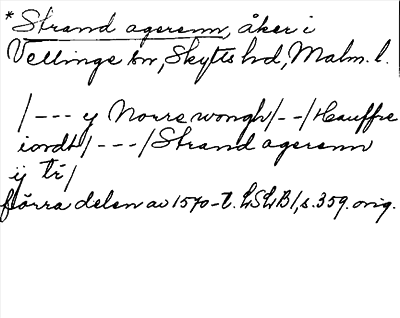 *Strand agerenn, åker i
Vellinge sn, Skytts hd, Malm. l.
/--- y Norre wongh/--/Hauffre
iordt/---/Strand agerenn
ij tr/
förra delen av 1570-t. LSLB1, s. 359. orig.